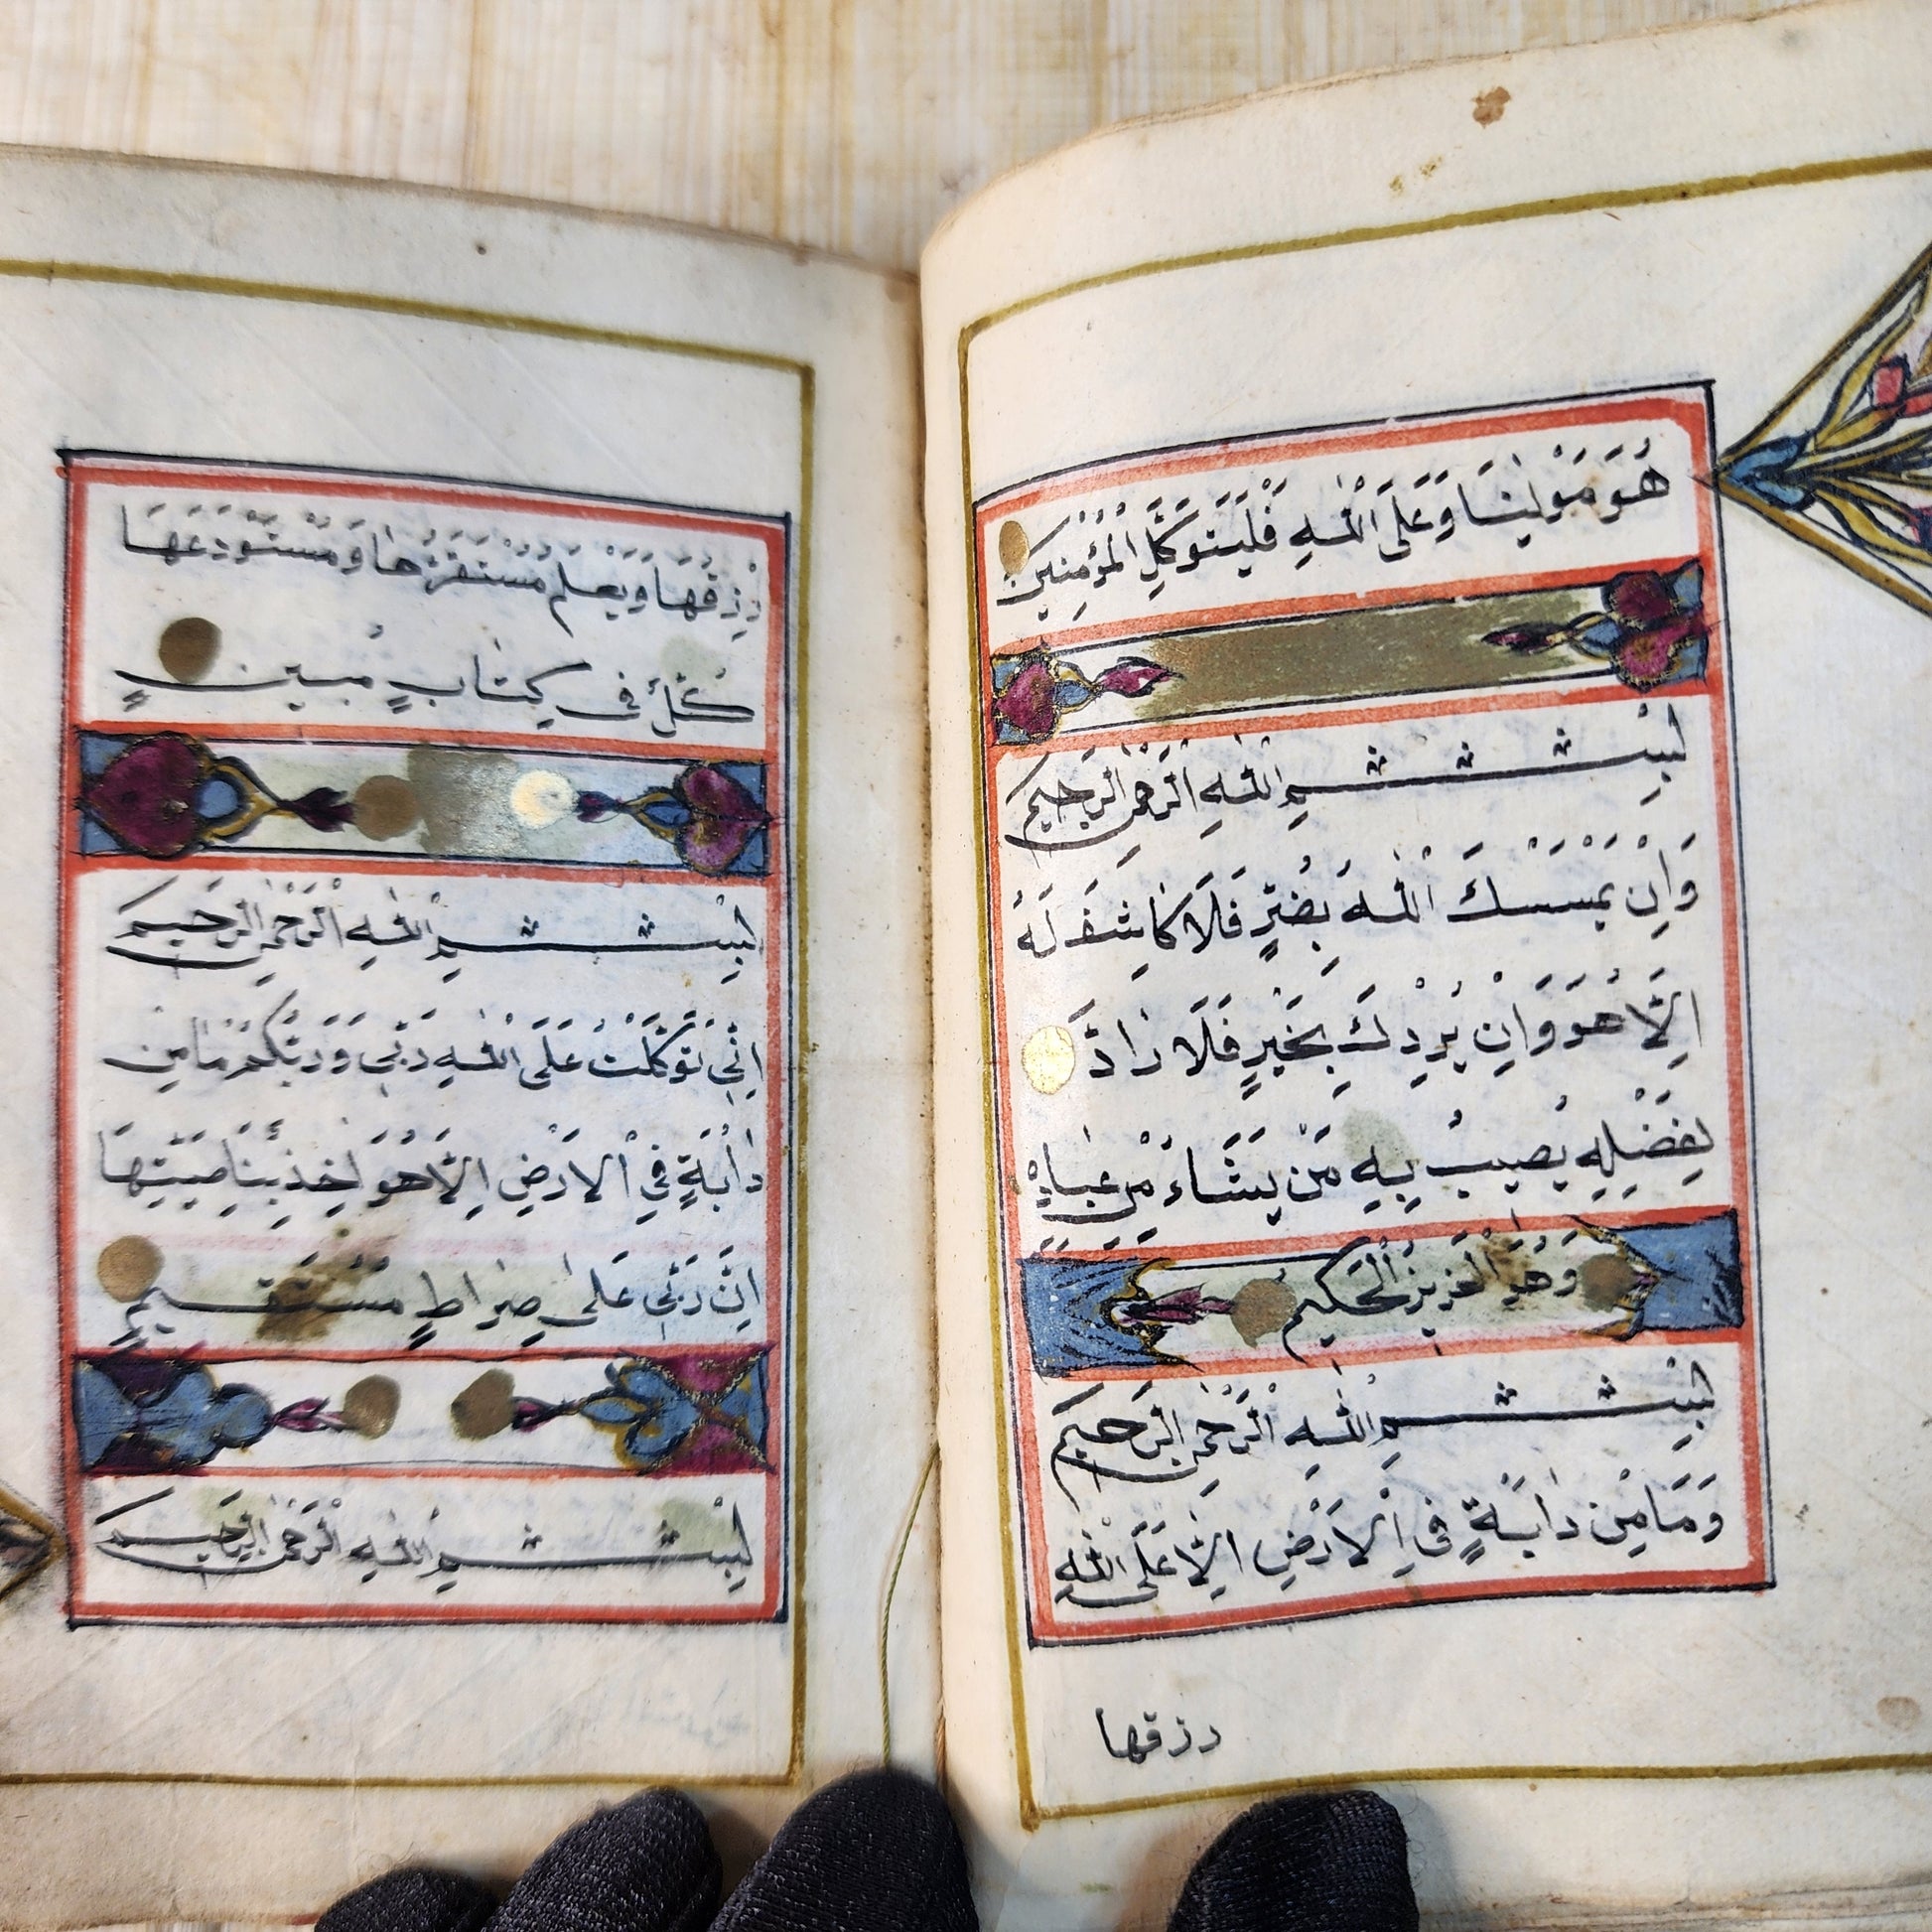 هُوَ مَوْلٰينَا وَعَلَى اللّٰهِ فَلْيَتَوَكَّلِ الْمُؤْمِنِينَ
بِسْمِ اللّٰهِ الرَّحْمٰنِ الرَّحِيمِ
وَاِنْ يَمْسَسْكَ اللّٰهُ بِضُرٍّ فَلَا كَاشِفَ لَهُ
اِلَّا هُوَ وَاِنْ يُرِدْكَ بِخَيْرٍ فَلَا رَادَّ
لِفَضْلِهِ يُصِيبُ بِهِ مَنْ يَشَاءُ مِنْ عِبَادِهِ
وَهُوَ الْعَزِيزُ الْحَكِيمُ
بِسْمِ اللّٰهِ الرَّحْمٰنِ الرَّحِيمِ
وَمَا مِنْ دَابَّةٍ فِي الْاَرْضِ اِلَّا عَلَى اللّٰهِ
رزقها
رِزْقُهَا وَيَعْلَمُ مُسْتَقَرَّهَا وَمُسْتَوْدَعَهَا
كُلٌّ فِي كِتَابٍ مُبِينٍ
بِسْمِ اللّٰهِ الرَّحْمٰنِ الرَّحِيمِ
اِنِّي تَوَكَّلْتُ عَلَى اللّٰهِ رَبِّي وَرَبِّكُمْ مَا مِنْ
دَابَّةٍ فِي الْاَرْضِ اِلَّا هُوَ اٰخِذٌ بِنَاصِيَتِهَا
اِنَّ رَبِّي عَلٰى صِرَاطٍ مُسْتَقِيمٍ
بِسْمِ اللّٰهِ الرَّحْمٰنِ الرَّحِيمِ